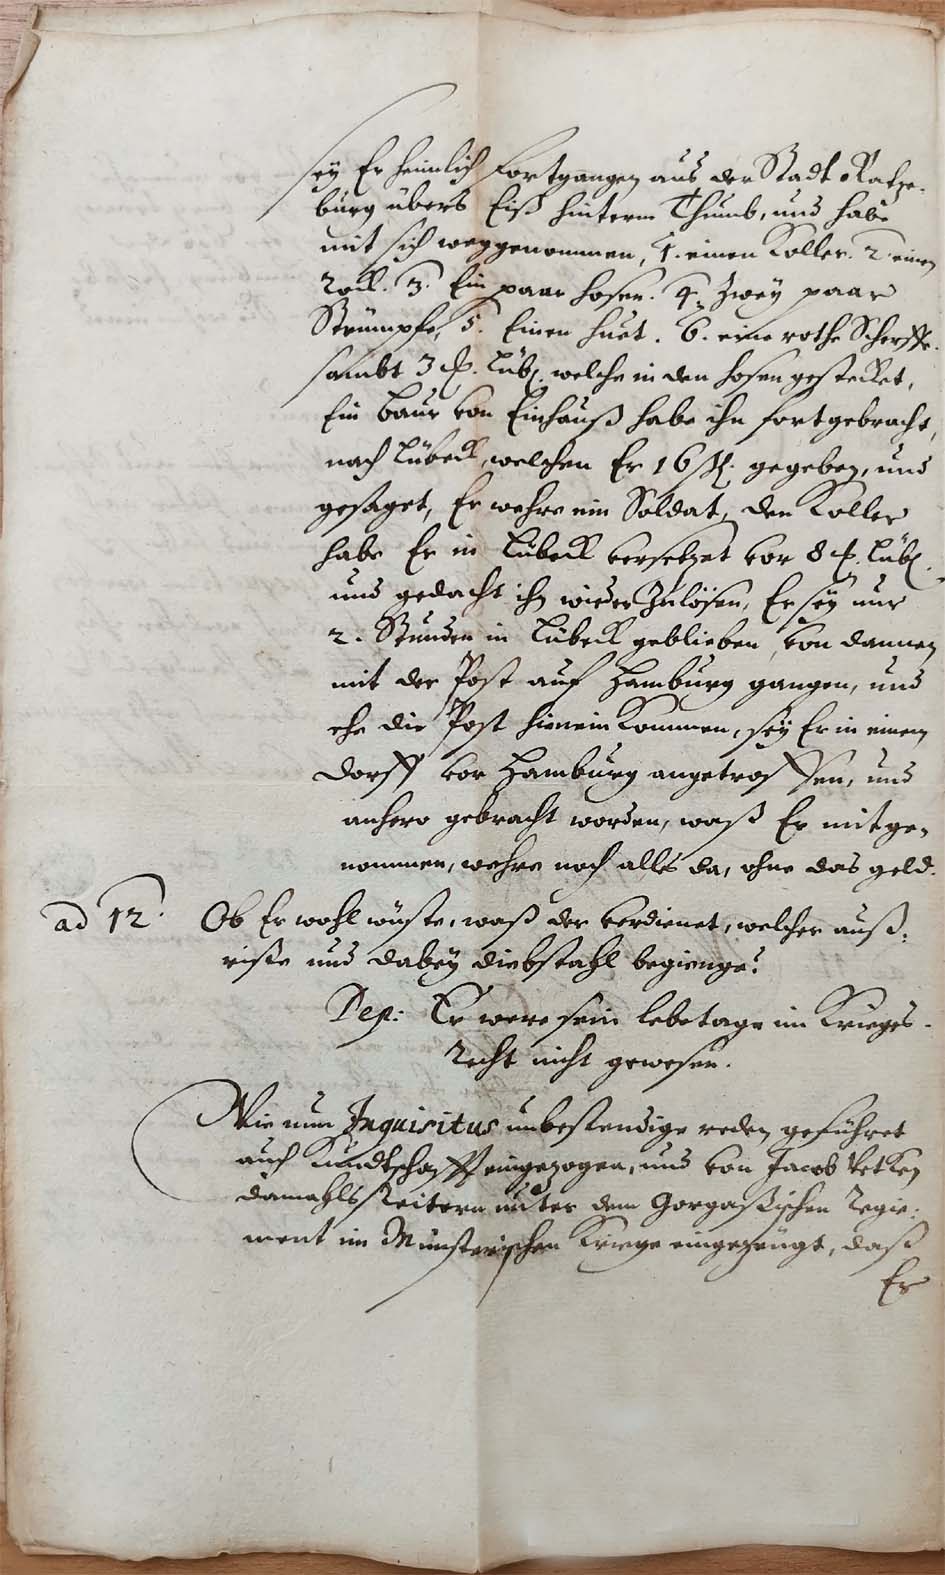 sey Er heimlich fortgangen aus der Stadt Ratze-
burg übers Eiß hinterm Thumb, und habe
mit sich weggenommen, 1. einen Koller. 2. einen
Rock. 3. Ein paar hosen. 4. Zwey paar
Strümpfe, 5. Einen huet. 6. eine rothe Scherffe.
sambt 3 ф. Lübß. welche in den hosen gestecket,
Ein baur von Einhauß habe ihn fortgebracht,
nach Lübeck, welchen Er 16 ßl. gegeben, und
gesaget, Er wehre ein Soldat, den Koller
habe Er in Lübeck versetzet vor 8 ф. Lübß.
und gedacht ihn wieder Zulösen, Er sey nur
2. Stunden in Lübeck geblieben, von dannen
mit der Post auf Hamburg gangen, und
ehe die Post hienein kommen, sey Er in einem
dorff vor Hamburg angetroffen, und
anhero gebracht worden, waß Er mitge-
nommen, wehre noch alles da, ohne das geld.
ad 12. Ob Er wohl wüste, waß der verdienet, welcher auß-
riße und dabey diebstahl begienge?
Dep: Er were sein lebetage im Krieges-
Recht nicht gewesen.
Wie nun Inquisitus unbestendige reden geführet
auch Kundtschafft eingezogen, und von Jacob
damahls Reitern unter dem Gorgaßischen Regie-
ment im Munsterischen Kriege eingezeugt, daß
Er